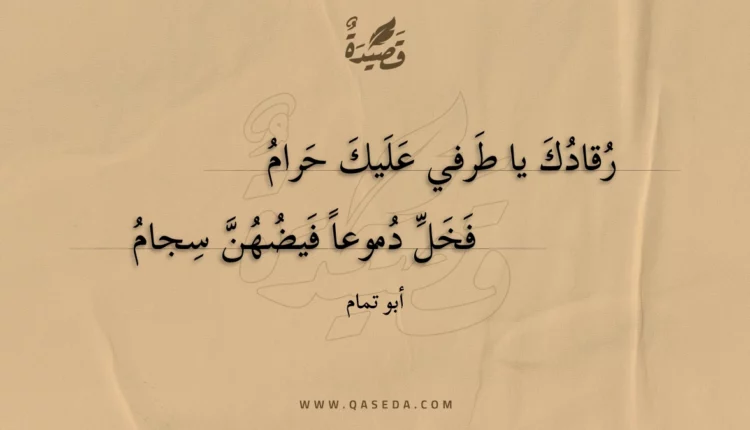 قَصِيدَةٌ
رُقادُكَ يا طَرفي عَلَيكَ حَرامُ
فَخَلِّ دُموعاً فَيضُهُنَّ سِجامُ
أبو تمام
WWW.QASEDA.COM